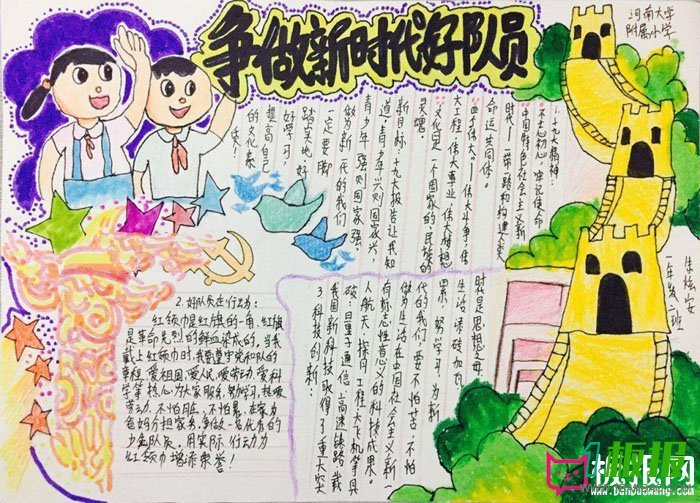 争做新时代好队员
河南大学
附属小学
1.十九大精神:
不忘初心,牢记使命
中国特色社会主义新
时代,一带一路和构建人类
命运共同体。
"四个伟大"——伟大斗争,伟
大工程,伟大事业,伟大梦想
文化是一个国家的民族的
灵魂。
新目标,十九大报告让我知
道,青少年兴则国家兴,
青少年强则国家强,
做为新一代的我们
一定要脚
踏实地,好
好学习,
提高自己
的文化素
养。
2.好队员在行动:
红领巾是红旗的一角,红旗
是革命先烈的鲜血染成的,当我
戴上红领巾时,我要遵守党和队的
章程,爱祖国,爱人民,爱劳动,爱科
学等核心,为大家服务,努力学习,积极
劳动,不怕脏,不怕累,在家为
爸妈分担家务,争做一名优秀的
少先队员,用实际行动为
红领巾增添荣誉!
3.科技创新:
我国新科技取得了重大突
破:日量子通信,高速铁路,载
人航天,探月工程,大飞机等具
有标志性意义的科技成果。
做为生活在中国社会主义新
代的我们,要不怕苦,不怕
累,努力学习,为新
生活添砖加瓦
是思想之母
一年级一班
板报网
www.banbaowang.com